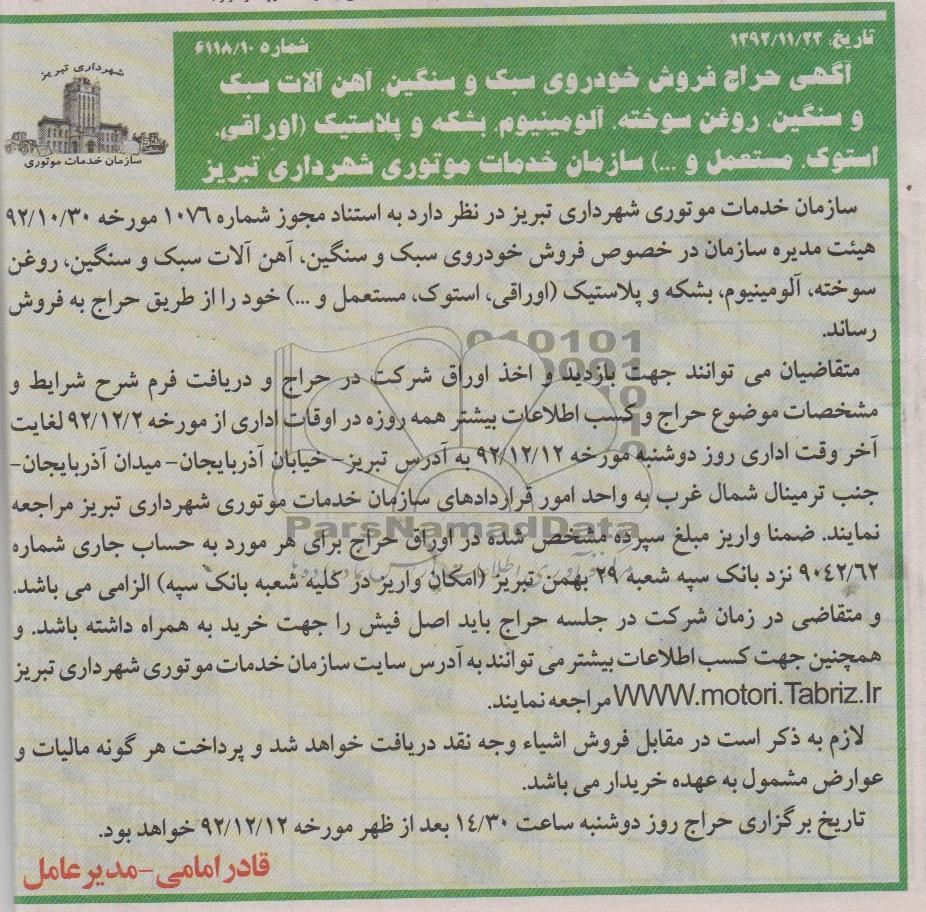 تاریخ: ۱۳۹۲/۱۱/۲۳
شماره ۶۱۱۸/۱۰
شهرداری تبریز
سازمان خدمات موتوری
آگهی حراج فروش خودروی سبک و سنگین، آهن آلات سبک
و سنگین، روغن سوخته، آلومینیوم، بشکه و پلاستیک (اوراقی،
استوک، مستعمل و ...) سازمان خدمات موتوری شهرداری تبریز
سازمان خدمات موتوری شهرداری تبریز در نظر دارد به استناد مجوز شماره ۱۰۷۶ مورخه ۹۲/۱۰/۳۰
هیئت مدیره سازمان در خصوص فروش خودروی سبک و سنگین، آهن آلات سبک و سنگین، روغن
سوخته، آلومینیوم، بشکه و پلاستیک (اوراقی، استوک، مستعمل و ...) خود را از طریق حراج به فروش
رساند.
متقاضیان می توانند جهت بازدید و اخذ اوراق شرکت در حراج و دریافت فرم شرح شرایط و
مشخصات موضوع حراج و کسب اطلاعات بیشتر همه روزه در اوقات اداری از مورخه ۹۲/۱۲/۲ لغایت
آخر وقت اداری روز دوشنبه مورخه ۹۲/۱۲/۱۲ به آدرس تبریز- خیابان آذربایجان- میدان آذربایجان-
جنب ترمینال شمال غرب به واحد امور قراردادهای سازمان خدمات موتوری شهرداری تبریز مراجعه
نمایند. ضمنا واریز مبلغ سپرده مشخص شده در اوراق حراج برای هر مورد به حساب جاری شماره
۹۰۴۲/۶۲ نزد بانک سپه شعبه ۲۹ بهمن تبریز (امکان واریز در کلیه شعبه بانک سپه) الزامی می باشد.
و متقاضی در زمان شرکت در جلسه حراج باید اصل فیش را جهت خرید به همراه داشته باشد. و
همچنین جهت کسب اطلاعات بیشتر می توانند به آدرس سایت سازمان خدمات موتوری شهرداری تبریز
WWW.motori.Tabriz.Ir مراجعه نمایند.
لازم به ذکر است در مقابل فروش اشیاء وجه نقد دریافت خواهد شد و پرداخت هر گونه مالیات و
عوارض مشمول به عهده خریدار می باشد.
تاریخ برگزاری حراج روز دوشنبه ساعت ۱۴/۳۰ بعد از ظهر مورخه ۹۲/۱۲/۱۲ خواهد بود.
قادر امامی-مدیر عامل
ParsNamadData